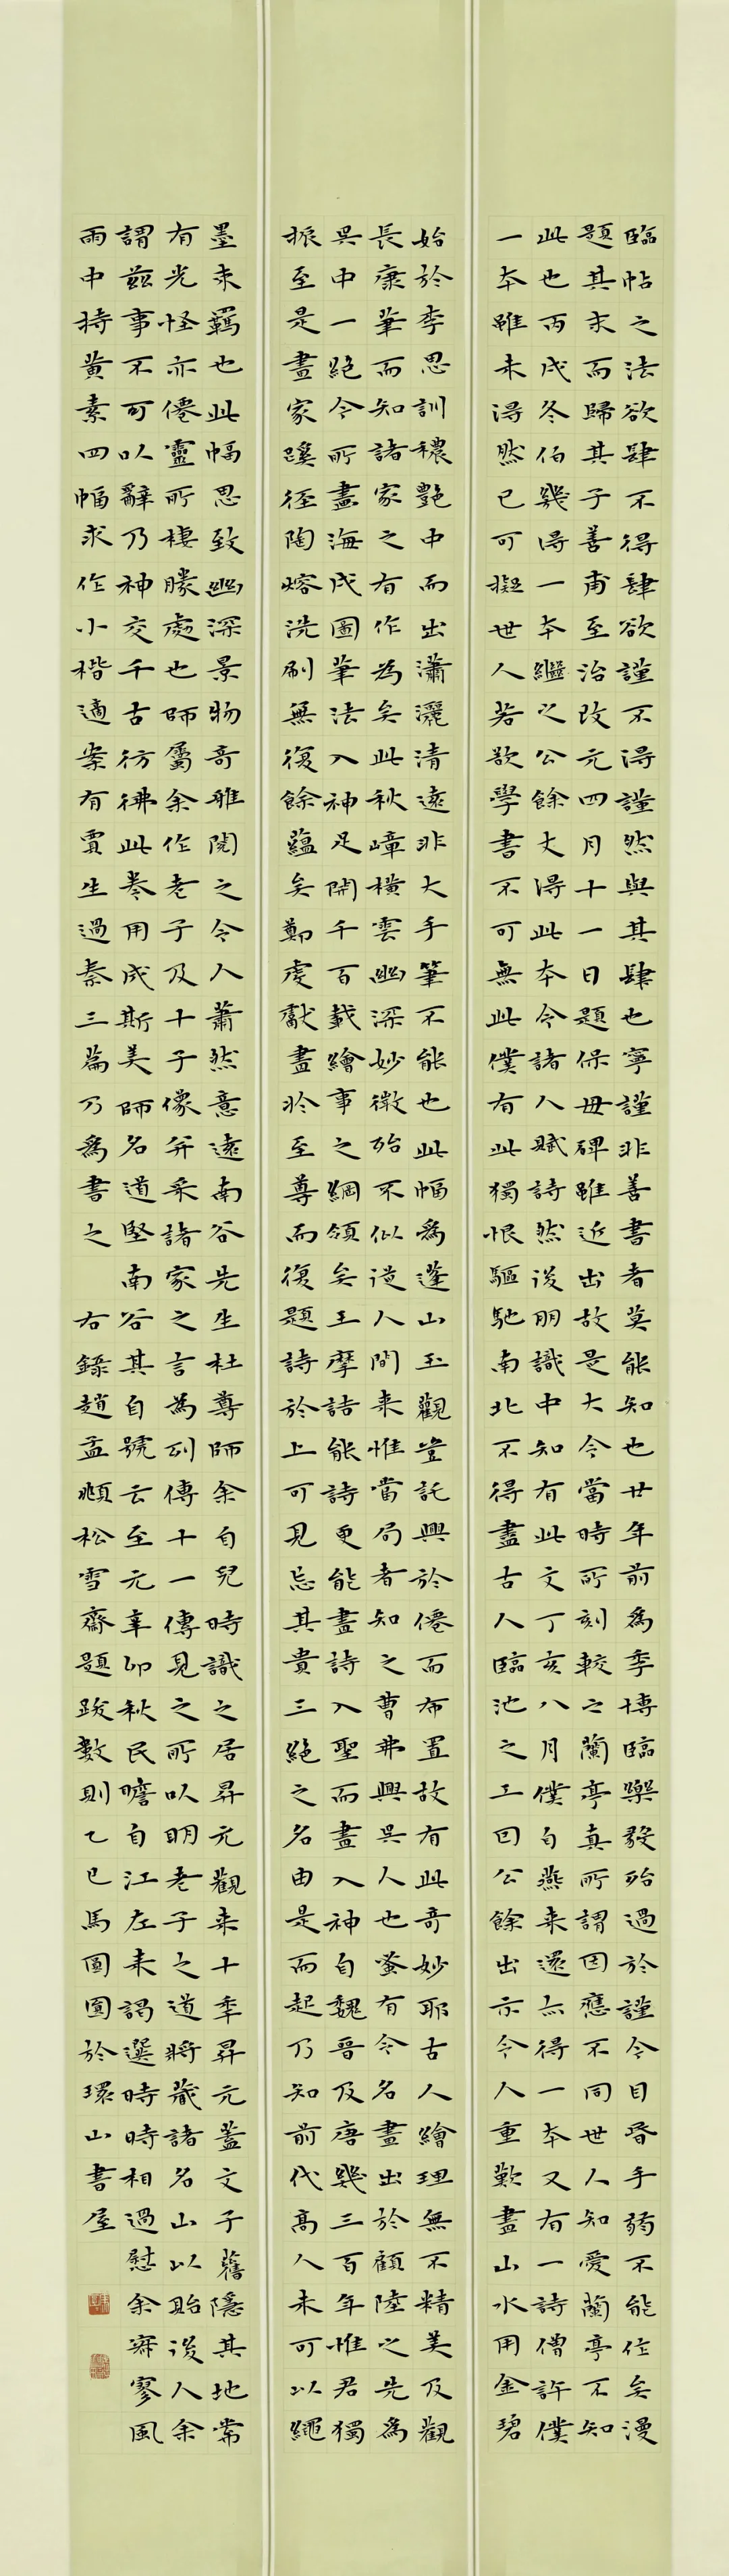 臨帖之法欲肆不得肆欲謹不得謹然與其肆也寧謹非善書者莫能知也廿年前為季博臨樂毅殆過於謹今目昏手弱不能作矣漫
題其末而歸其子善甫至治改元四月十一日題保母碑雖近出故是大令當時所刻較之蘭亭真所謂因應不同世人知愛蘭亭不知
此也丙戌冬伯幾得一本繼之公餘丈得此本今諸人賦詩然後朋識中知有此文丁亥八月僕自燕來還亦得一本又有一詩僧許僕
一本雖未得然已可擬世人若欲學書不可無此僕有此獨恨驅馳南北不得盡古人臨池之工因公餘出示令人重歎畫山水用金碧
始於李思訓穠艷中而出瀟灑清遠非大手筆不能也此幅為蓬山玉觀豈託興於僊而布置故有此奇妙耶古人繪理無不精美及觀
長康筆而知諸家之有作為矣此秋嶂橫雲幽深妙微殆不似從人間來惟當局者知之曹弗興吳人也蚤有令名畫出於顧陸之先為
吳中一絕今所畫海戍圖筆法入神足開千百載繪事之綱領矣王摩詰能詩更能畫詩入聖而畫入神自魏晉及唐幾三百年惟君獨
振至是畫家蹊徑陶熔洗刷無復餘蘊矣鄭虔獻畫於至尊而復題詩於上可見忌其貴三絕之名由是而起乃知前代高人未可以繩
墨求羈也此幅思致幽深景物奇雅閱之令人蕭然意遠南谷先生杜尊師余自兒時識之居昇元觀來十年昇元蓋文子舊隱其地常
有光怪亦僊靈所棲勝處也師屬余作老子及十子像并采諸家之言為列傳十一傳見之所以明老子之道將藏諸名山以貽後人余
謂茲事不可以辭乃神交千古彷彿此卷用成斯美師名道堅南谷其自號云至元辛卯秋民瞻自江左來謁選時時相過慰余寂寥風
雨中持黃素四幅求作小楷適案有賈生過秦三篇乃為書之 右錄趙孟頫松雪齋題跋數則乙巳馬圓圓於環山書屋